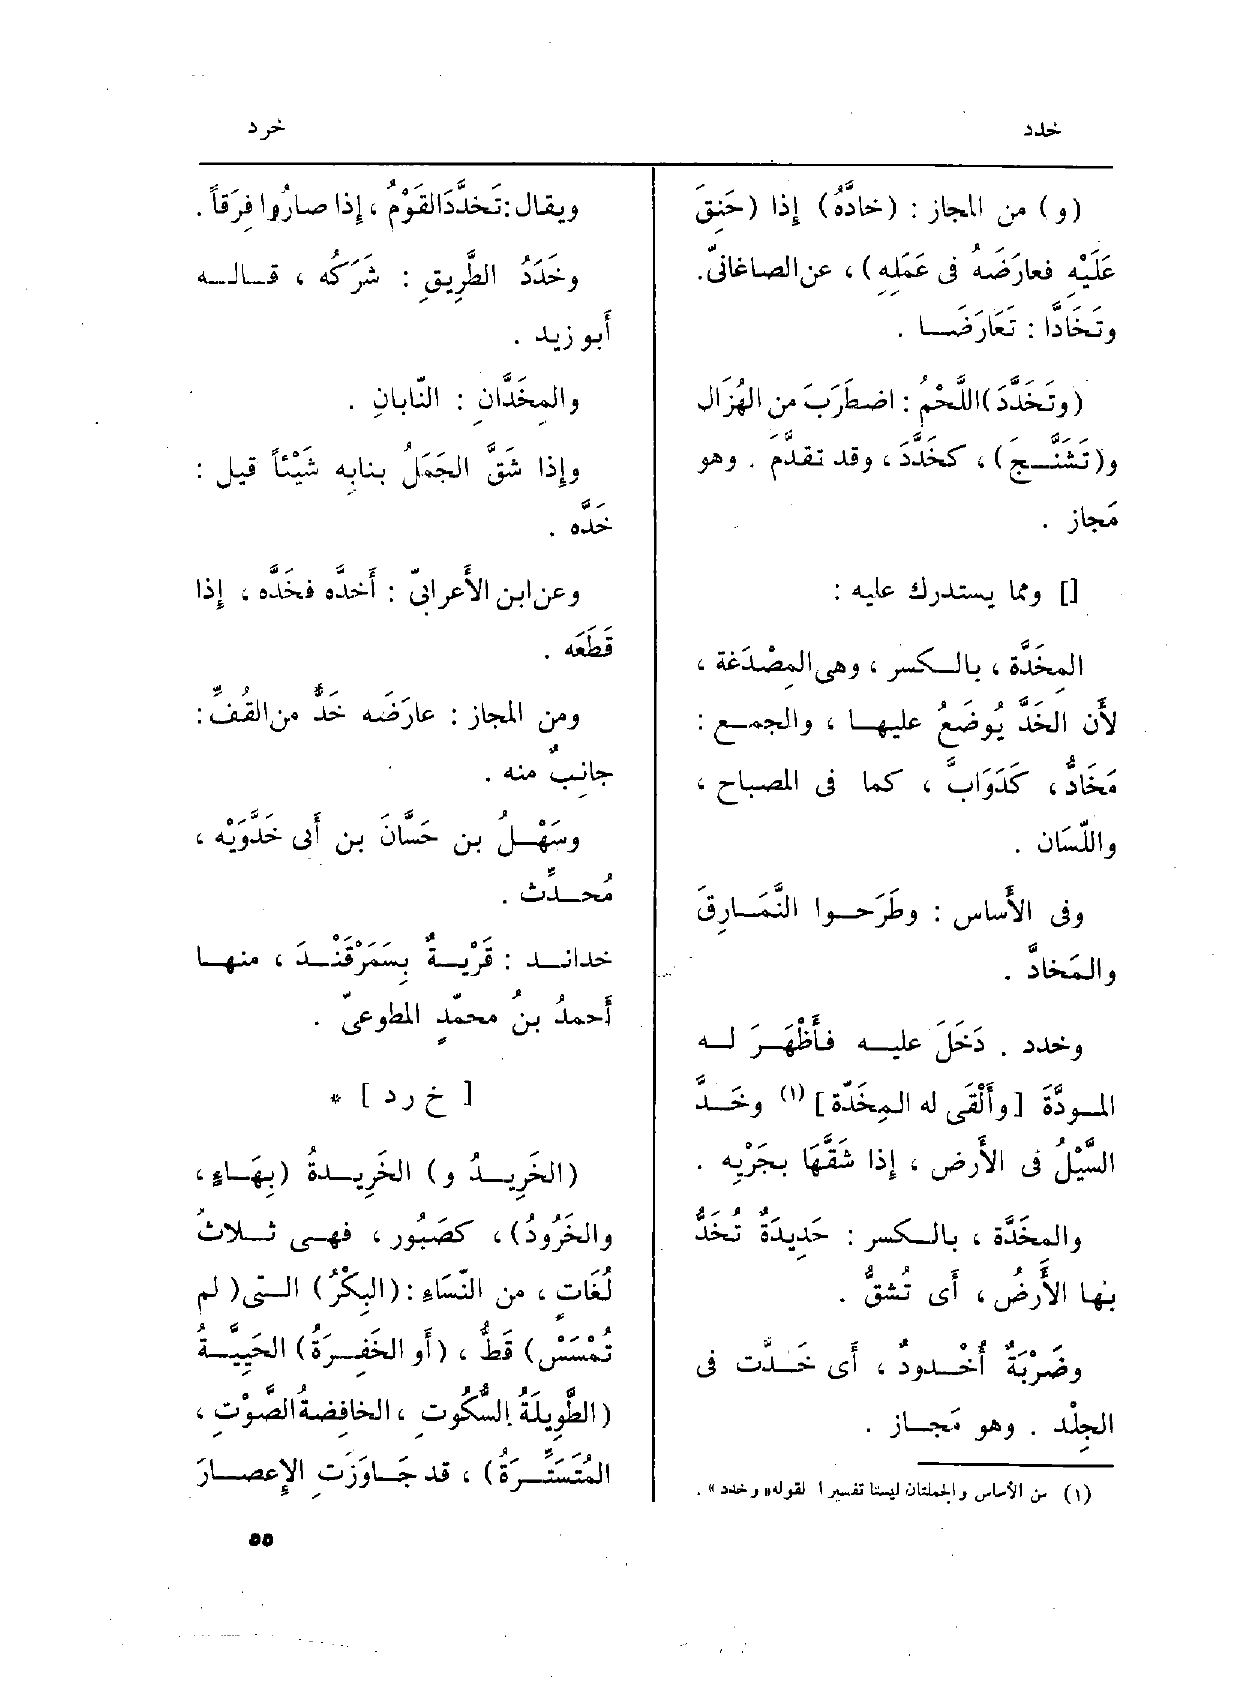 خدد
خرد
(و) من المجاز : (خادَّهُ) إذا (حَنِقَ
عَلَيْهِ فعارَضَهُ فى عَمَلِهِ) ، عن الصاغانىّ.
وتَخَادَّا : تَعَارَضَـا .
(وتَخَدَّدَ) اللَّحْمُ : اضطَرَبَ من الهُزَال
و(تَشَنَّـج) ، كخَدَّدَ ، وقد تقدَّم . وهو
مَجاز .
[] ومما يستدرك عليه :
المِخَدَّة ، بالـكسر ، وهى المِصْدَغة ،
لأَن الخَدَّ يُوضَعُ عليهـا ، والجمـع :
مَخَادُّ ، كَدَوَابَّ ، كما فى المصباح ،
واللّسَان .
وفى الأَساس : وطَرَحـوا النَّمَـارِقَ
والمَخادَّ .
وخدد . دَخَلَ عليـه فـأَظْهَـرَ لـه
المـودَّةَ [وأَلْقَى له المِخَدّة] (١) وخَـدَّ
السَّيْلُ فى الأَرض ، إذا شَقَّهَا بجَرْيِه .
والمِخَدَّة ، بالـكسر : حَدِيدَةٌ تُخَدُّ
بِها الأَرضُ ، أَى تُشَقُّ .
وضَرْبَةٌ أُخْـدودٌ ، أَى خَـدَّت فى
الجِلْد . وهو مَجـاز .
(١) من الأساس والجملتان ليستا تفسيرا لقوله « وخدد » .
ويقال : تَخدَّدَ القَوْمُ ، إذا صارُوا فِرَقاً .
وخَدَدُ الطَّرِيقِ : شَرَكُه ، قـالـه
أَبو زيد .
والمِخَدَّانِ : النّابانِ .
وإذا شَقَّ الجَمَلُ بنابِه شَيْئاً قيل :
خَدَّه .
وعن ابن الأَعرابىّ : أَخدَّه فخَدَّه ، إذا
قَطَعَه .
ومن المجاز : عارَضه خَدٌّ من القُفِّ :
جانِبٌ منه .
وسَهْـلُ بن حَسَّانَ بن أَبى خَدَّوَيْه ،
مُحـدِّث .
خدانـد : قَرْيـةٌ بِسَمَرْقَنْـدَ ، منهـا
أَحمدُ بنُ محمّدٍ المطوعىّ .
[ خ ر د ] *
(الخَرِيـدُ و) الخَرِيـدةُ (بِهَـاءٍ ،
والخَرُودُ) ، كصَبُور ، فهـى ثـلاثُ
لُغَاتٍ ، من النّسَاءِ : (البِكْرُ) الـتى (لم
تُمْسَسْ) قَطُّ ، (أَو الخَفِـرَةُ) الحَيِيَّـةُ
(الطَّوِيلَةُ السُّكُوتِ ، الخافِضةُ الصَّوْتِ ،
المُتَسَتِّـرَةُ) ، قد جَـاوَزَتِ الإِعصـارَ
٥٥